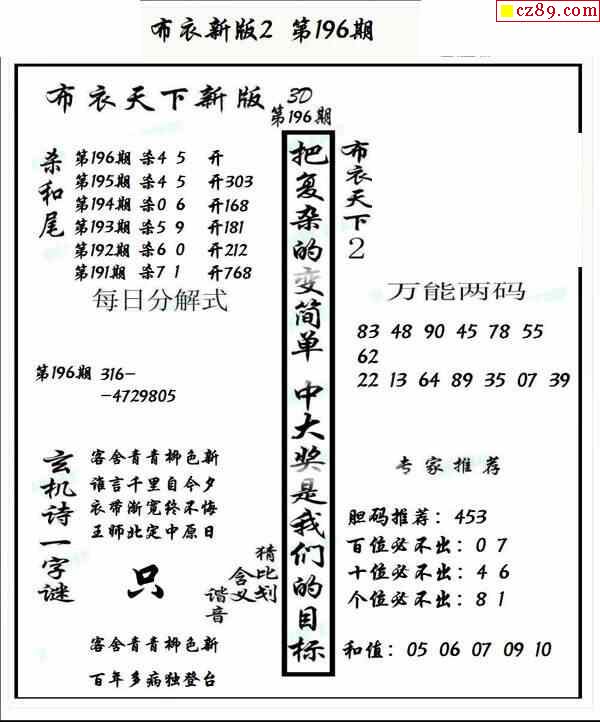 cz89.com
布衣新版2 第196期
布衣天下新版 3D
第196期
杀和尾
第196期 杀4 5 开
第195期 杀4 5 开303
第194期 杀0 6 开168
第193期 杀5 9 开181
第192期 杀6 0 开212
第191期 杀7 1 开768
每日分解式
第196期 316-
-4729805
玄机诗一字谜
客舍青青柳色新
谁言千里自今夕
衣带渐宽终不悔
王师北定中原日
只
猜比划
含义
谐音
客舍青青柳色新
百年多病独登台
把复杂的变简单 中大奖是我们的目标
布衣天下2
万能两码
83 48 90 45 78 55
62
22 13 64 89 35 07 39
专家推荐
胆码推荐：453
百位必不出：0 7
十位必不出：4 6
个位必不出：8 1
和值：05 06 07 09 10